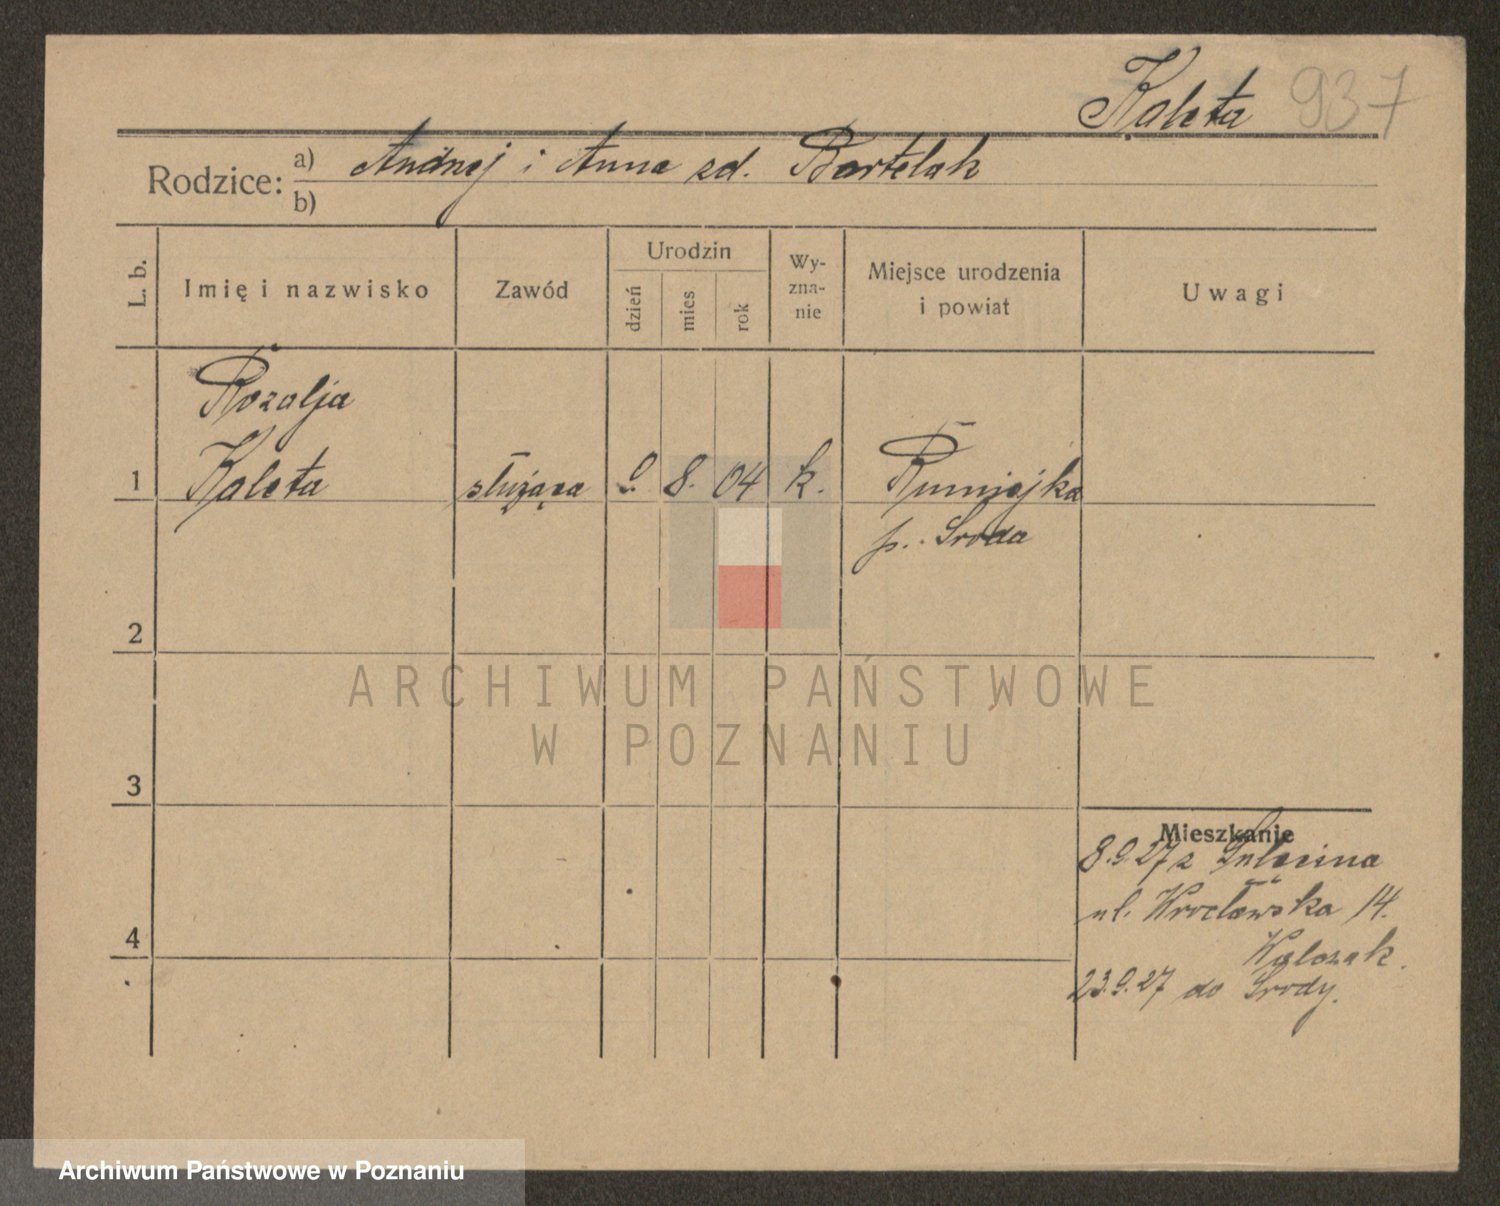 Kaleta 937
Rodzice: a) Andrzej i Anna zd. Bartelak
b)
L. b. Imię i nazwisko Zawód Urodzin dzień mies rok Wy-zna-nie Miejsce urodzenia i powiat Uwagi
Rozalja
1 Kaleta służąca 9. 8. 04 k. Rumiejka
p. Środa
2
ARCHIWUM PAŃSTWOWE
W POZNANIU
3
Mieszkanie
8.9.27 z Gulęcina
ul. Wrocławska 14.
4 Walczak.
23.9.27 do Środy.
Archiwum Państwowe w Poznaniu